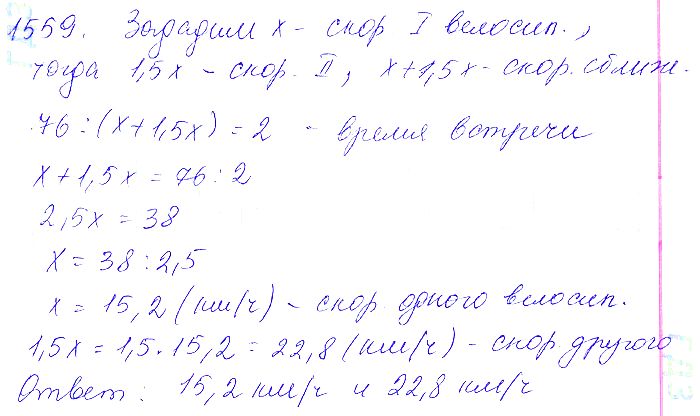 1559. Зададим x - скор I велосип.,
тогда 1,5x - скор. II, x+1,5x - скор. сближ.
76:(x+1,5x) = 2 - время встречи
x+1,5x = 76:2
2,5x = 38
x = 38:2,5
x = 15,2 (км/ч) - скор. одного велосип.
1,5x = 1,5·15,2 = 22,8 (км/ч) - скор. другого
Ответ: 15,2 км/ч и 22,8 км/ч